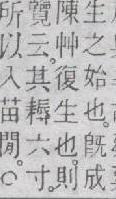 生之始也。旣成
陳艸復生也。則
覽云。其耨六寸。
所以入苗閒。○